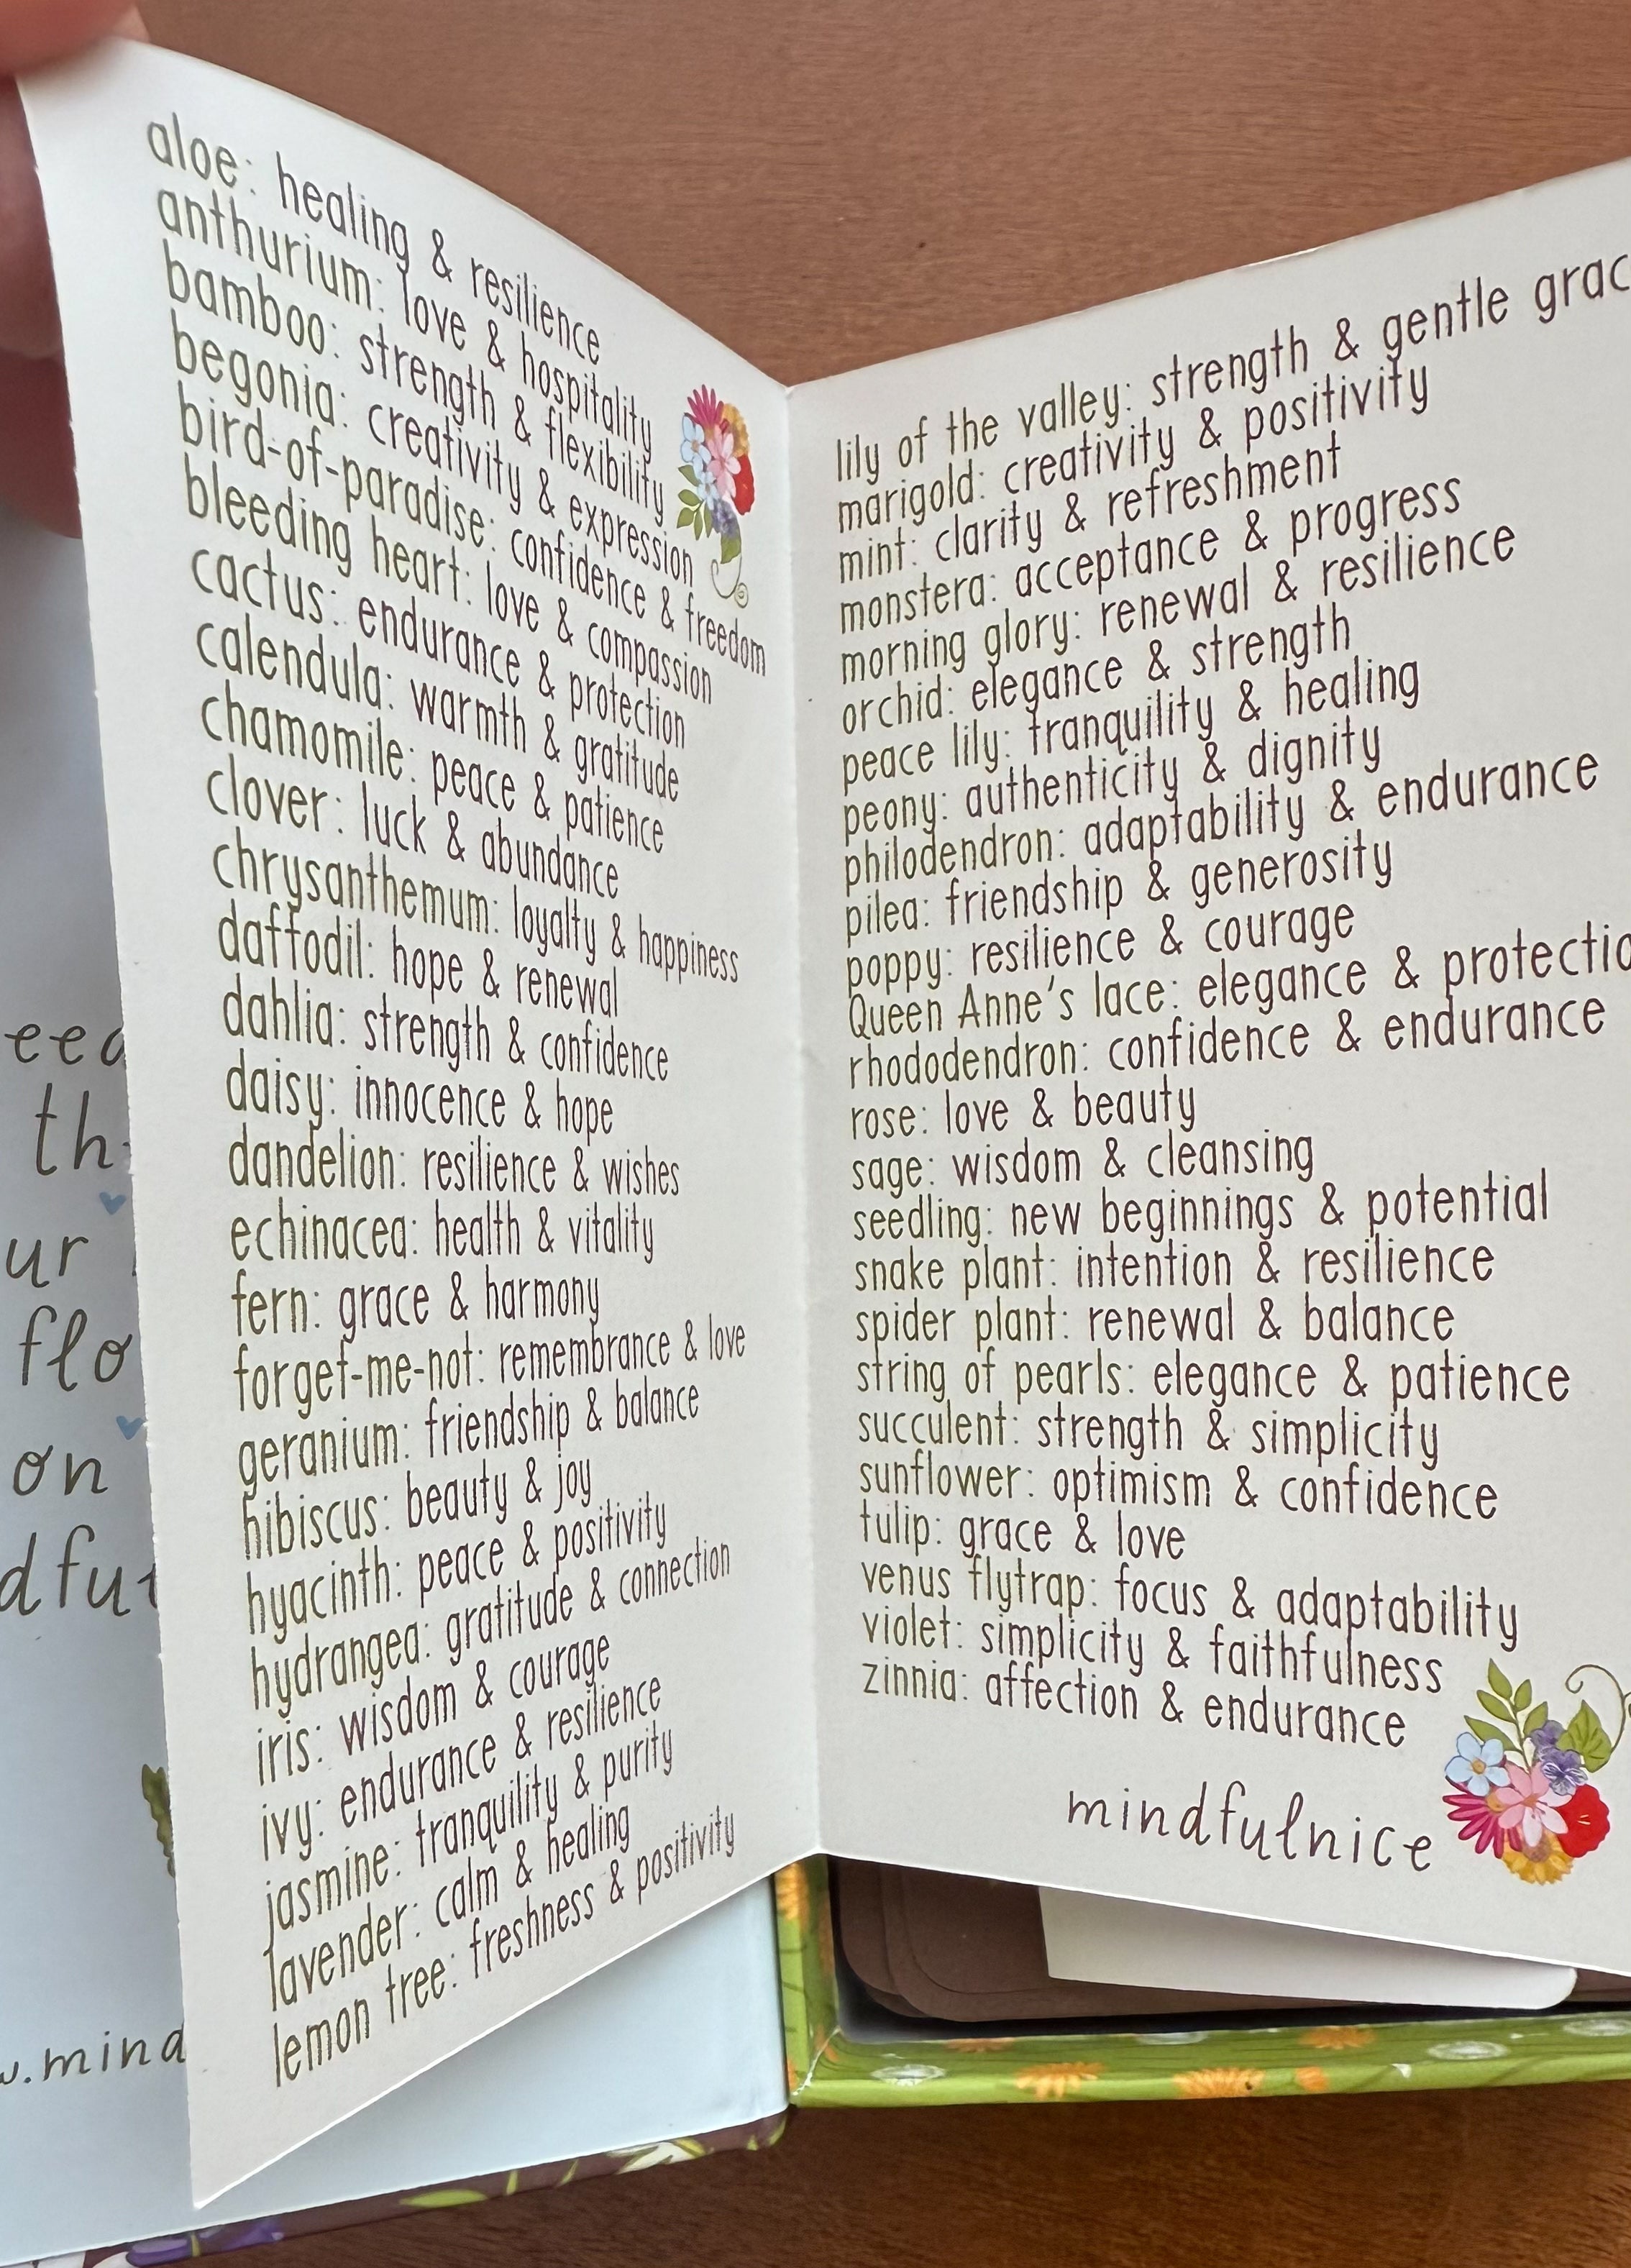 aloe: healing & resilience
anthurium: love & hospitality
bamboo: strength & flexibility
begonia: creativity & expression
bird-of-paradise: confidence & freedom
bleeding heart: love & compassion
cactus: endurance & protection
calendula: warmth & gratitude
chamomile: peace & patience
clover: luck & abundance
chrysanthemum: loyalty & happiness
daffodil: hope & renewal
dahlia: strength & confidence
daisy: innocence & hope
dandelion: resilience & wishes
echinacea: health & vitality
fern: grace & harmony
forget-me-not: remembrance & love
geranium: friendship & balance
hibiscus: beauty & joy
hyacinth: peace & positivity
hydrangea: gratitude & connection
iris: wisdom & courage
ivy: endurance & resilience
jasmine: tranquility & purity
lavender: calm & healing
lemon tree: freshness & positivity
lily of the valley: strength & gentle grac
marigold: creativity & positivity
mint: clarity & refreshment
monstera: acceptance & progress
morning glory: renewal & resilience
orchid: elegance & strength
peace lily: tranquility & healing
peony: authenticity & dignity
philodendron: adaptability & endurance
pilea: friendship & generosity
poppy: resilience & courage
Queen Anne's lace: elegance & protectio
rhododendron: confidence & endurance
rose: love & beauty
sage: wisdom & cleansing
seedling: new beginnings & potential
snake plant: intention & resilience
spider plant: renewal & balance
string of pearls: elegance & patience
succulent: strength & simplicity
sunflower: optimism & confidence
tulip: grace & love
venus flytrap: focus & adaptability
violet: simplicity & faithfulness
zinnia: affection & endurance
mindfulnice
th
ur
flo
on
w.mind